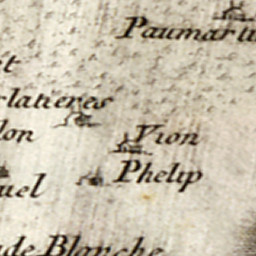 Paumartin
t
clatieres
lon
Vion
Phelip
uel
ude Blanche